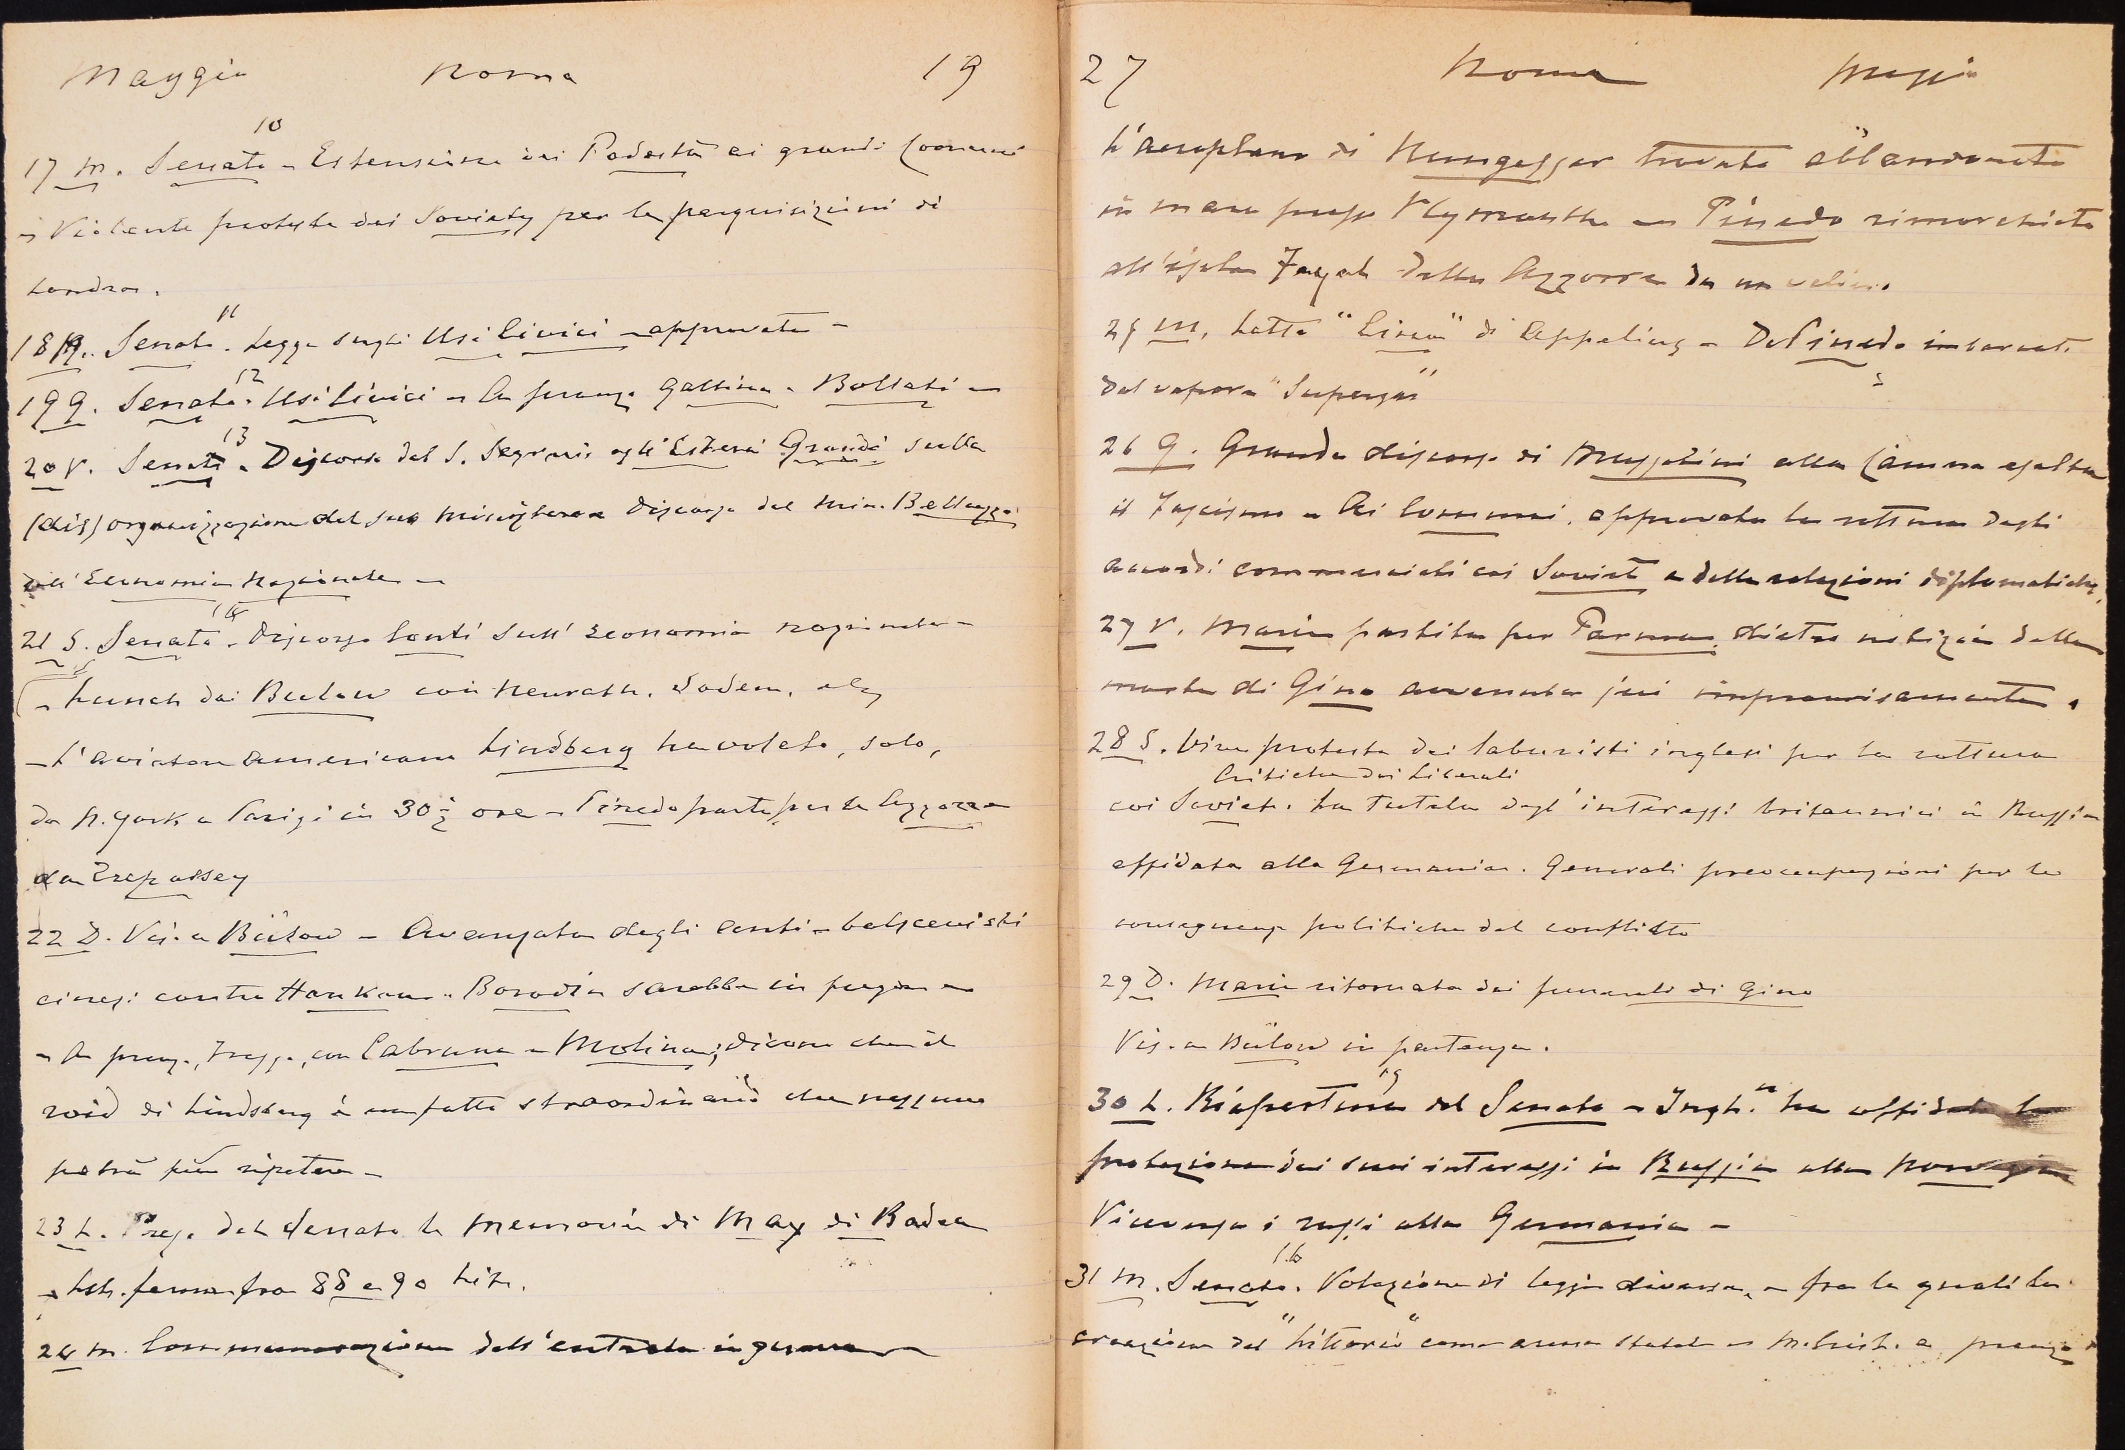 Maggio Roma 19
10
17 M. Senato - Estensione dei Podestà ai grandi Comuni
- Violente proteste dei Soviety per le perquisizioni di
Londra.
11
18 M. Senato. Legge sugli Usi Civici - approvata -
12
19 G. Senato. Usi Civici - A pranzo Gallina - Bollati -
13
20 V. Senato - Discorso del S. Segrario agli Esteri Grandi sulla
(dis)organizzazione del suo Ministero - Discorso del min. Belluzzo
dell'Economia Nazionale -
14
21 S. Senato - Discorso Conti sull'Economia nazionale -
- Lunch dai Bulow con Neurath, Sodem, etc
- L'aviatore americano Lindberg ha volato, solo,
da N. York a Parigi in 30 ½ ore - Pinedo parte per le Azzorre
da Trepassey
22 D. Vis. a Bülow - Avanzata degli anti-bolscevichi
cinesi contro Hankow - Borodin sarebbe in fuga -
- A pranzo, con Cabruna e Molina; dicono che il
raid di Lindsberg è un fatto straordinario che nessuno
potrà più ripetere -
23 L. Preso dal Senato le Memorie di Max di Baden
- Lst. ferma fra 88 e 90 Lit.
24 M. Commemorazione dell'entrata in guerra -
27 Roma Maggio
L'aeroplano di Nungesser trovato abbandonato
in mare presso Plymouth - Pinedo rimorchiato
all'isola Fayal delle Azzorre da un veliero.
25 M. Lotta "Cirea" di Appelius - De Pinedo imbarcato
dal vapore "Superga"
26 G. Grande discorso di Mussolini alla Camera esalta
il Fascismo - Ai Comuni, approvata la rottura degli
accordi commerciali coi Soviet e delle relazioni diplomatiche.
27 V. Maria partita per Parma, dietro notizia della
morte di Gino avvenuta ieri improvvisamente.
28 S. Viva protesta dei laburisti inglesi per la rottura
Critiche dei Liberali
coi Soviet. La tutela degl'interessi britannici in Russia
affidata alla Germania. Generali preoccupazioni per le
conseguenze politiche del conflitto
29 D. Maria ritornata dai funerali di Gino
Vis. a Bülow in partenza.
15
30 L. Riapertura del Senato - Ingh.a ha affidato la
protezione dei suoi interessi in Russia alla Norvegia
Viceversa i russi alla Germania -
16
31 M. Senato. Votazione di leggi diverse, - fra le quali la
creazione del "Littorio" come arma statale - a pranzo